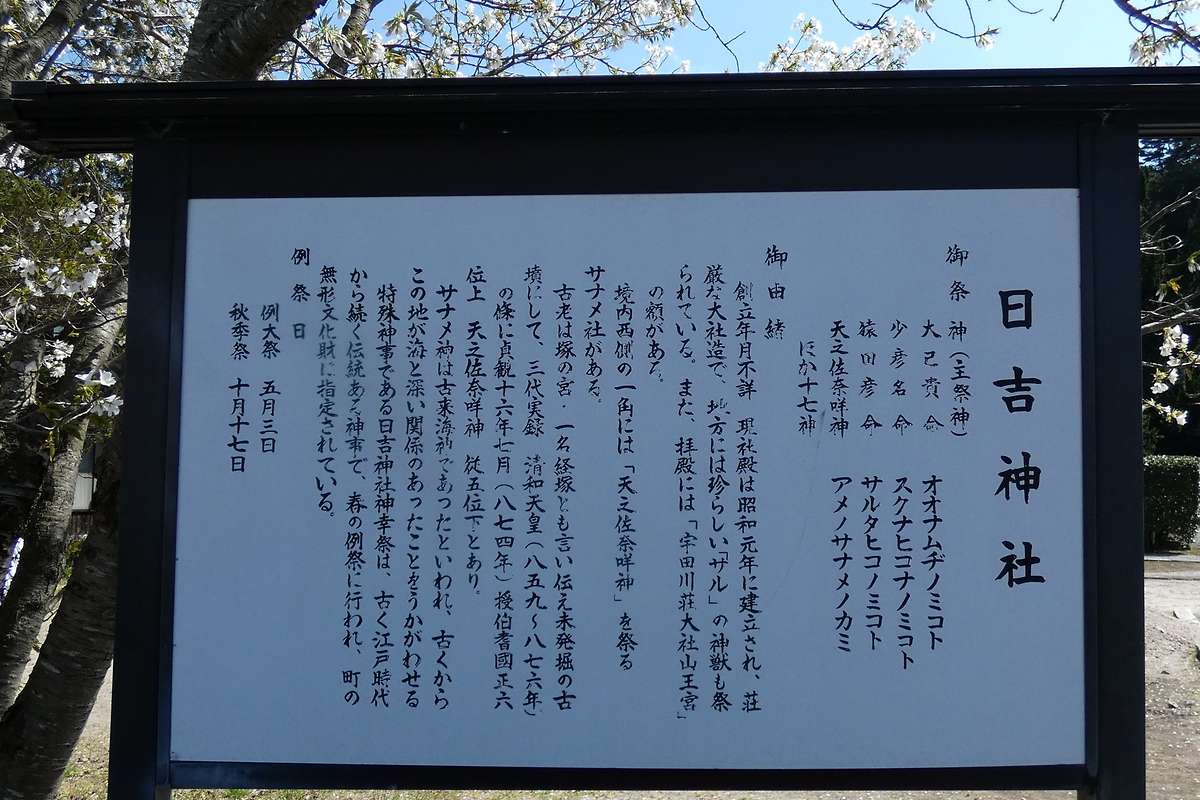 日吉神社
御祭神(主祭神)
大己貴命 オオナムヂノミコト
少彦名命 スクナヒコナノミコト
猿田彦命 サルタヒコノミコト
天之佐奈咩神 アメノサナメノカミ
ほか十七神
御由緒
創立年月不詳 現社殿は昭和元年に建立され、荘
厳な大社造で、地方には珍らしい「ザル」の神獣も祭
られている。また、拝殿には「宇田川荘大社山王宮」
の額がある。
境内西側の一角には「天之佐奈咩神」を祭る
サナメ社がある。
古老は塚の宮・一名経塚とも言い伝え未発掘の古
墳にして、三代実録 清和天皇(八五九〜八七六年)
の條に貞観十六年七月(八七四年)授伯耆國正六
位上 天之佐奈咩神 従五位下とあり。
サナメ神は古来海神であったといわれ、古くから
この地が海と深い関係のあったことをうかがわせる
特殊神事である日吉神社神幸祭は、古く江戸時代
から続く伝統ある神事で、春の例祭に行われ、町の
無形文化財に指定されている。
例祭日
例大祭 五月三日
秋季祭 十月十七日